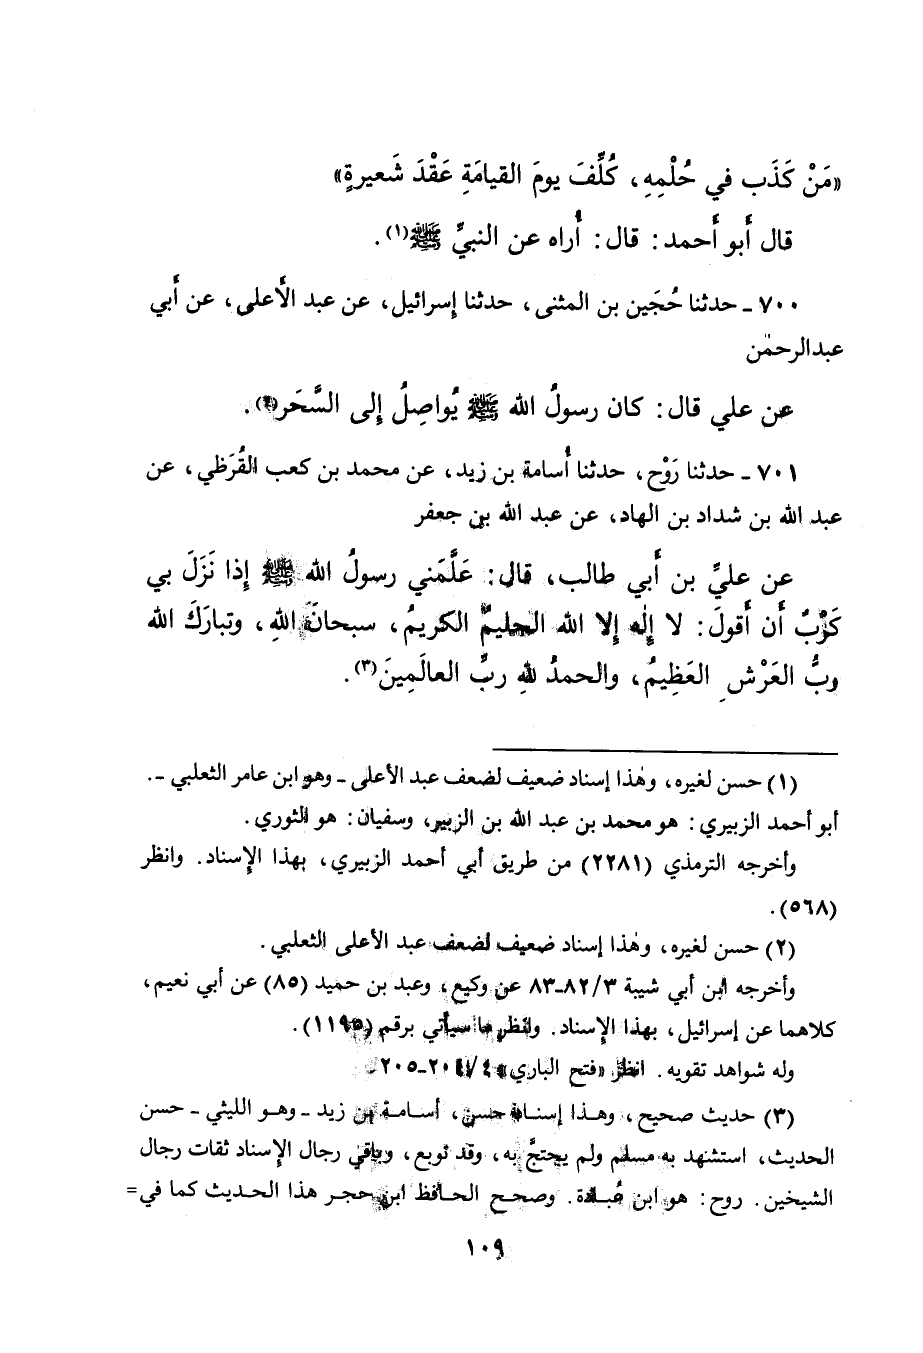 «مَنْ كَذَب في حُلْمِهِ، كُلِّفَ يومَ القيامَةِ عَقْدَ شَعيرةٍ»
قال أَبو أَحمد: قال: أُراه عن النبيِّ ﷺ(١).
٧٠٠ ـ حدثنا حُجَين بن المثنى، حدثنا إسرائيل، عن عبد الأَعلى، عن أَبي
عبدالرحمٰن
عن علي قال: كان رسولُ الله ﷺ يُواصِلُ إِلى السَّحَرِ(٢).
٧٠١ ـ حدثنا رَوْح، حدثنا أُسامة بن زيد، عن محمد بن كعب القُرَظي، عن
عبد الله بن شداد بن الهاد، عن عبد الله بن جعفر
عن عليِّ بن أَبي طالب، قال: عَلَّمَني رسولُ الله ﷺ إِذا نَزَلَ بي
كَرْبٌ أَن أَقولَ: لا إِلٰه إِلا الله الحليمُ الكريمُ، سبحانَ اللهِ، وتبارَكَ الله
ربُّ العَرْشِ العَظِيمُ، والحمدُ للهِ ربِّ العالَمِينَ(٣).
(١) حسن لغيره، وهٰذا إسناد ضعيف لضعف عبد الأعلى ـ وهو ابن عامر الثعلبي ـ.
أبو أحمد الزبيري: هو محمد بن عبد الله بن الزبير، وسفيان: هو الثوري.
وأخرجه الترمذي (٢٢٨١) من طريق أبي أحمد الزبيري، بهذا الإسناد. وانظر
(٥٦٨).
(٢) حسن لغيره، وهٰذا إسناد ضعيف لضعف عبد الأعلى الثعلبي.
وأخرجه ابن أبي شيبة ٨٢/٣-٨٣ عن وكيع، وعبد بن حميد (٨٥) عن أبي نعيم،
كلاهما عن إسرائيل، بهذا الإسناد. وانظر ما سيأتي برقم (١١٩٥).
وله شواهد تقويه. انظر «فتح الباري» ٢٠٤/٤-٢٠٥.
(٣) حديث صحيح، وهـذا إسناد حسن، أسـامـة بن زيد ـ وهـو الليثي ـ حسن
الحديث، استشهد به مسلم ولم يحتجَّ به، وقد توبع، وباقي رجال الإسناد ثقات رجال
الشيخين. روح: هو ابن عُبـادة. وصحـح الحـافظ ابن حجـر هذا الحـديث كما في=
١٠٩